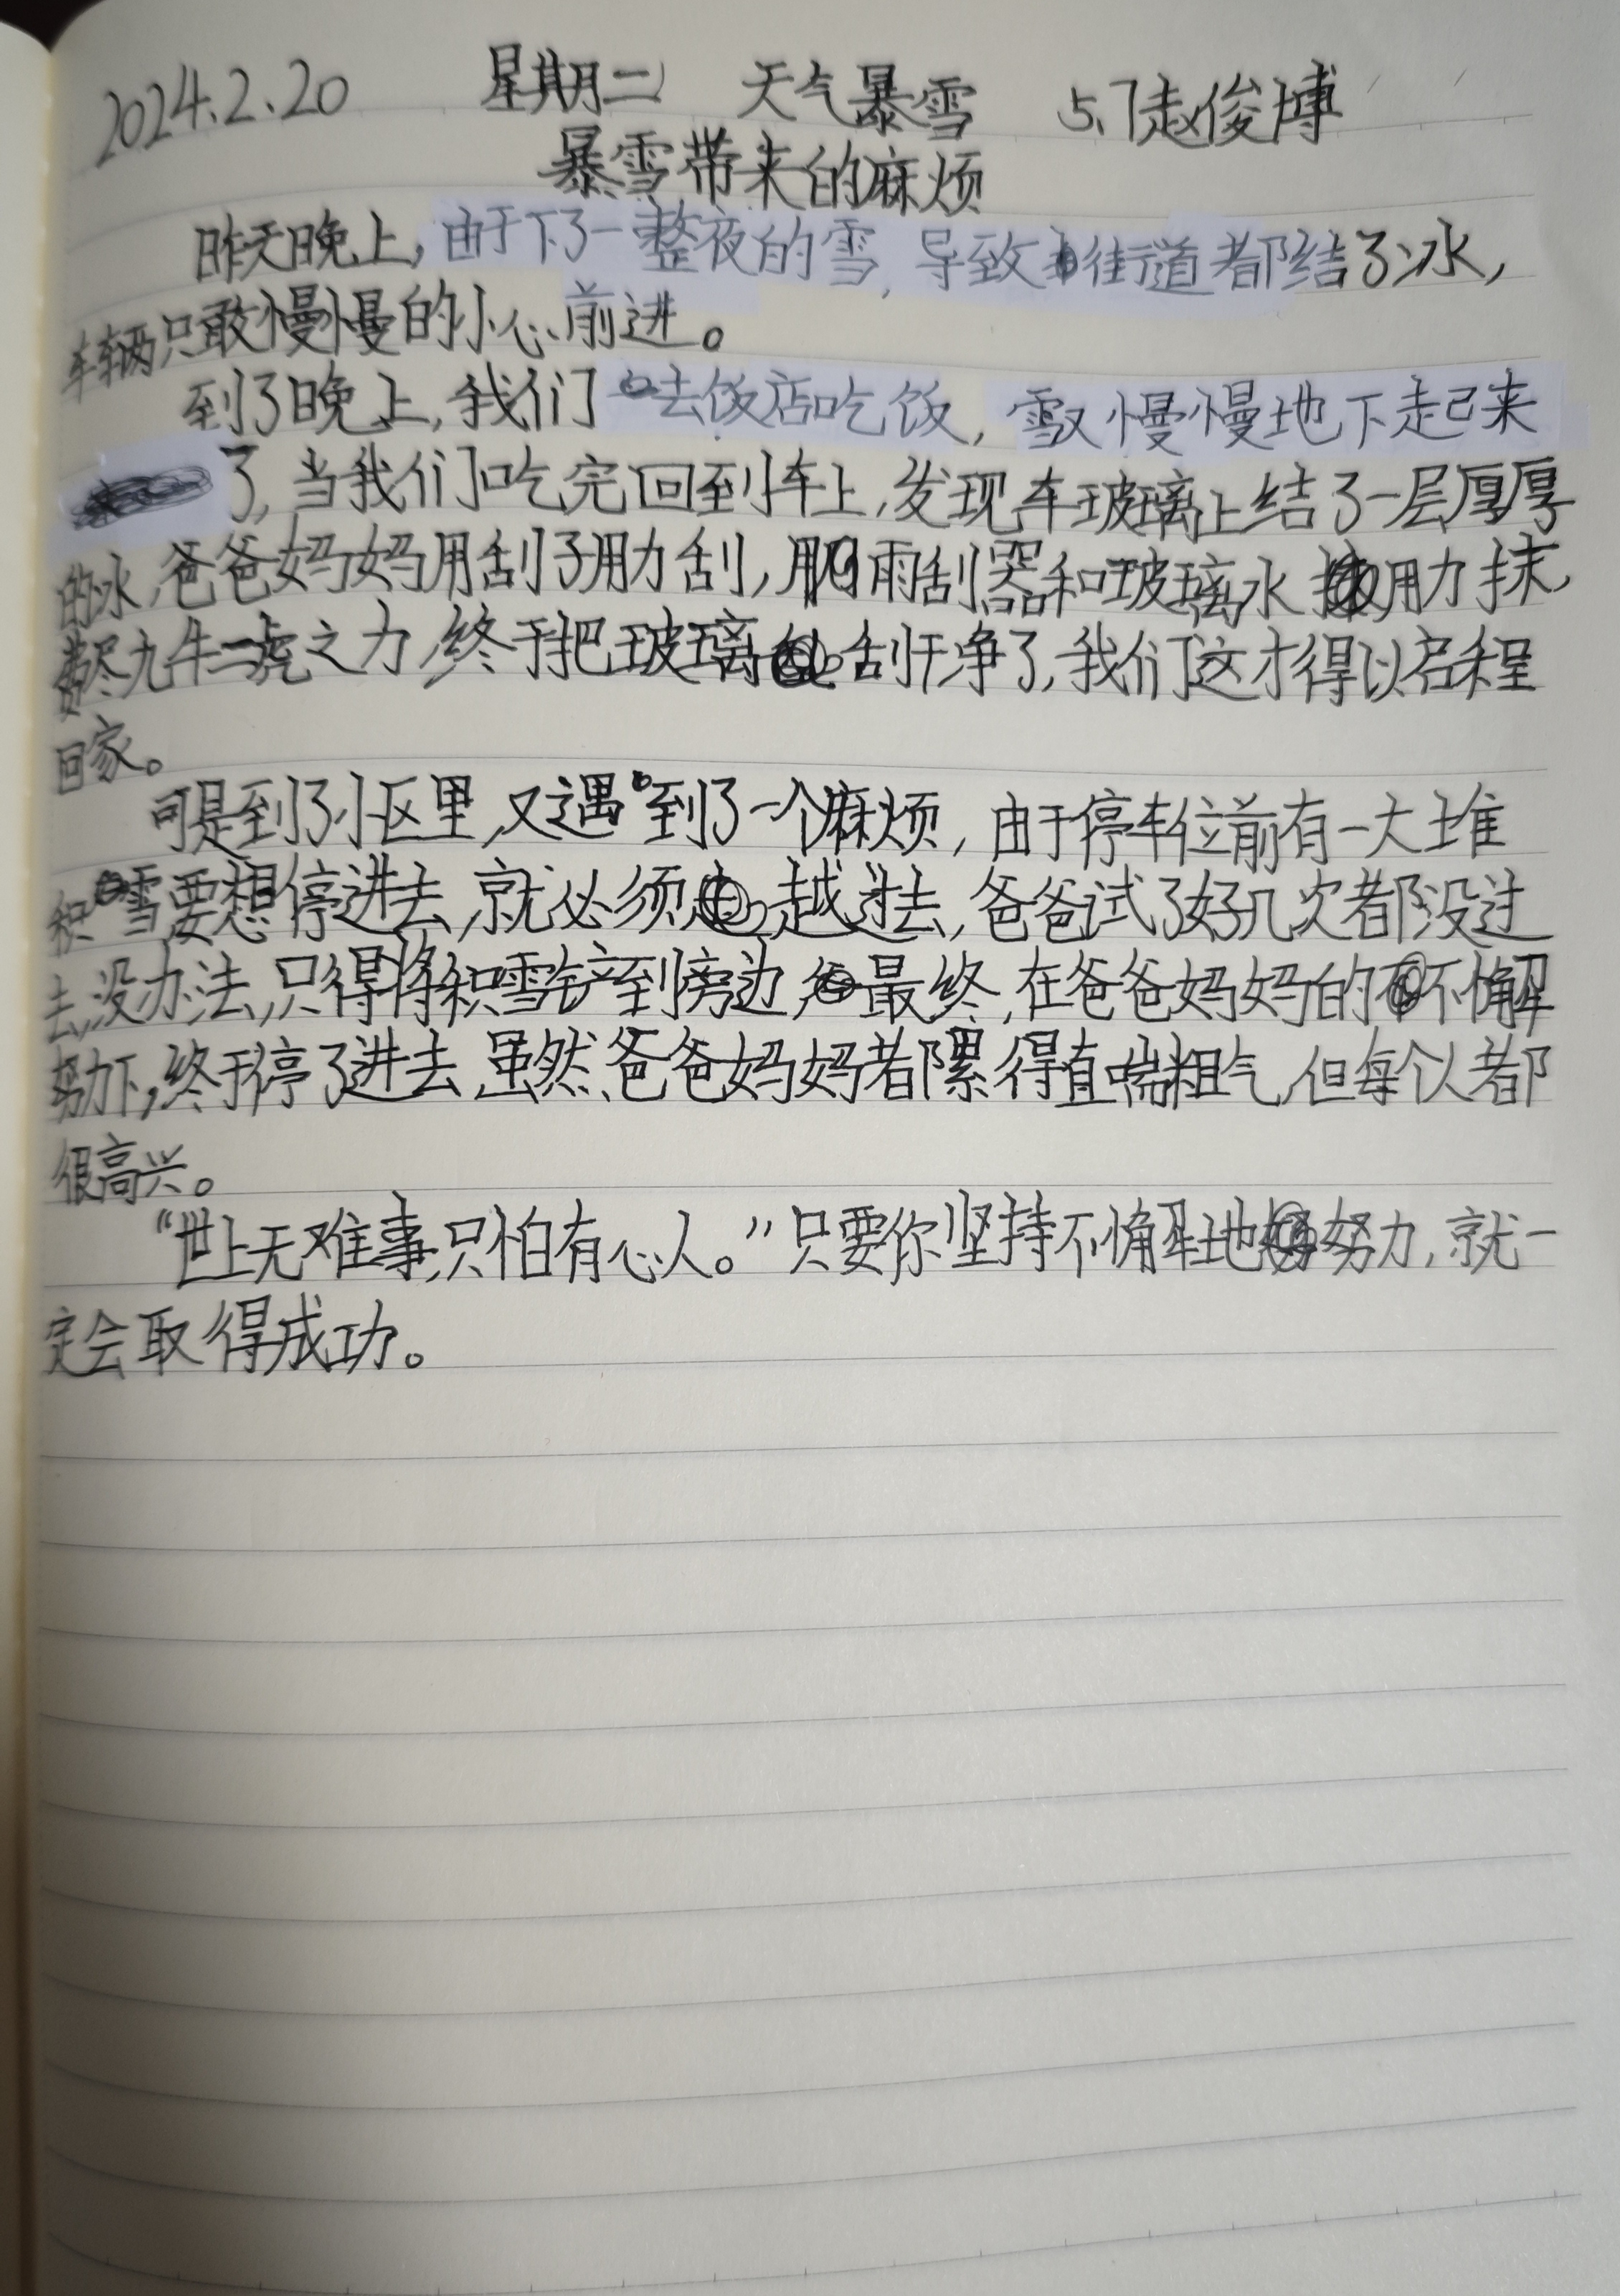 2024.2.20 星期二 天气暴雪 5.7赵俊博
暴雪带来的麻烦
昨天晚上,由于下了一整夜的雪,导致街道都结了冰,
车辆只敢慢慢的小心前进。
到了晚上,我们去饭店吃饭,雪又慢慢地下起来
了,当我们吃完回到车上,发现车玻璃上结了一层厚厚
的冰,爸爸妈妈用刮子用力刮,用雨刮器和玻璃水用力抹,
费尽九牛二虎之力,终于把玻璃刮干净了,我们这才得以启程
回家。
可是到了小区里,又遇到了一个麻烦,由于停车位前有一大堆
积雪要想停进去,就必须越过去,爸爸试了好几次都没过
去,没办法,只得将积雪铲到旁边,最终,在爸爸妈妈的不懈
努力下,终于停了进去,虽然爸爸妈妈都累得直喘粗气,但每个人都
很高兴。
“世上无难事,只怕有心人。”只要你坚持不懈地努力,就一
定会取得成功。